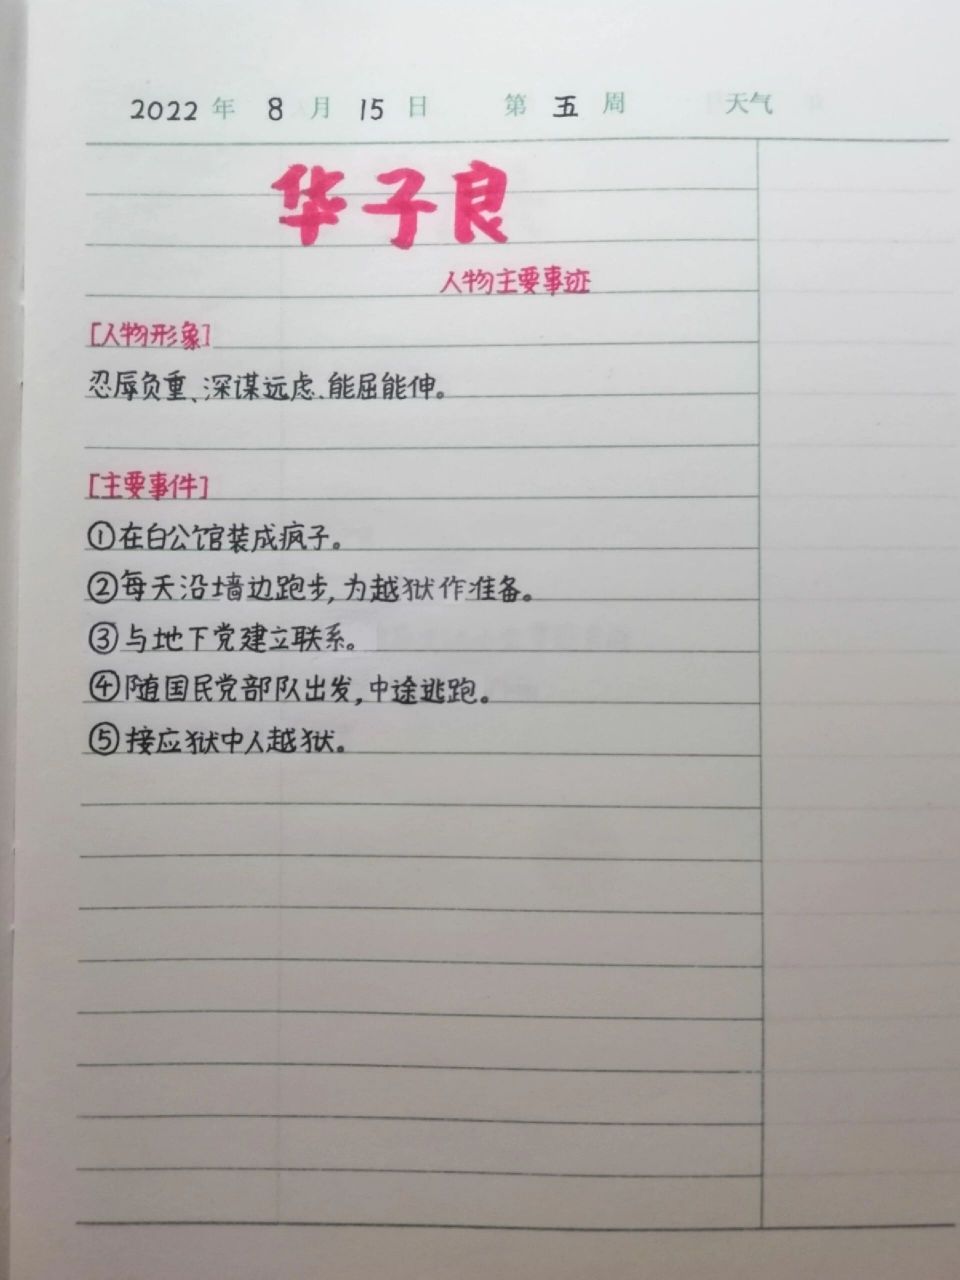 2022年 8月 15日 第五周 天气
华子良
人物主要事迹
[人物形象]
忍辱负重、深谋远虑、能屈能伸。
[主要事件]
①在白公馆装成疯子。
②每天沿墙边跑步,为越狱作准备。
③与地下党建立联系。
④随国民党部队出发,中途逃跑。
⑤接应狱中人越狱。